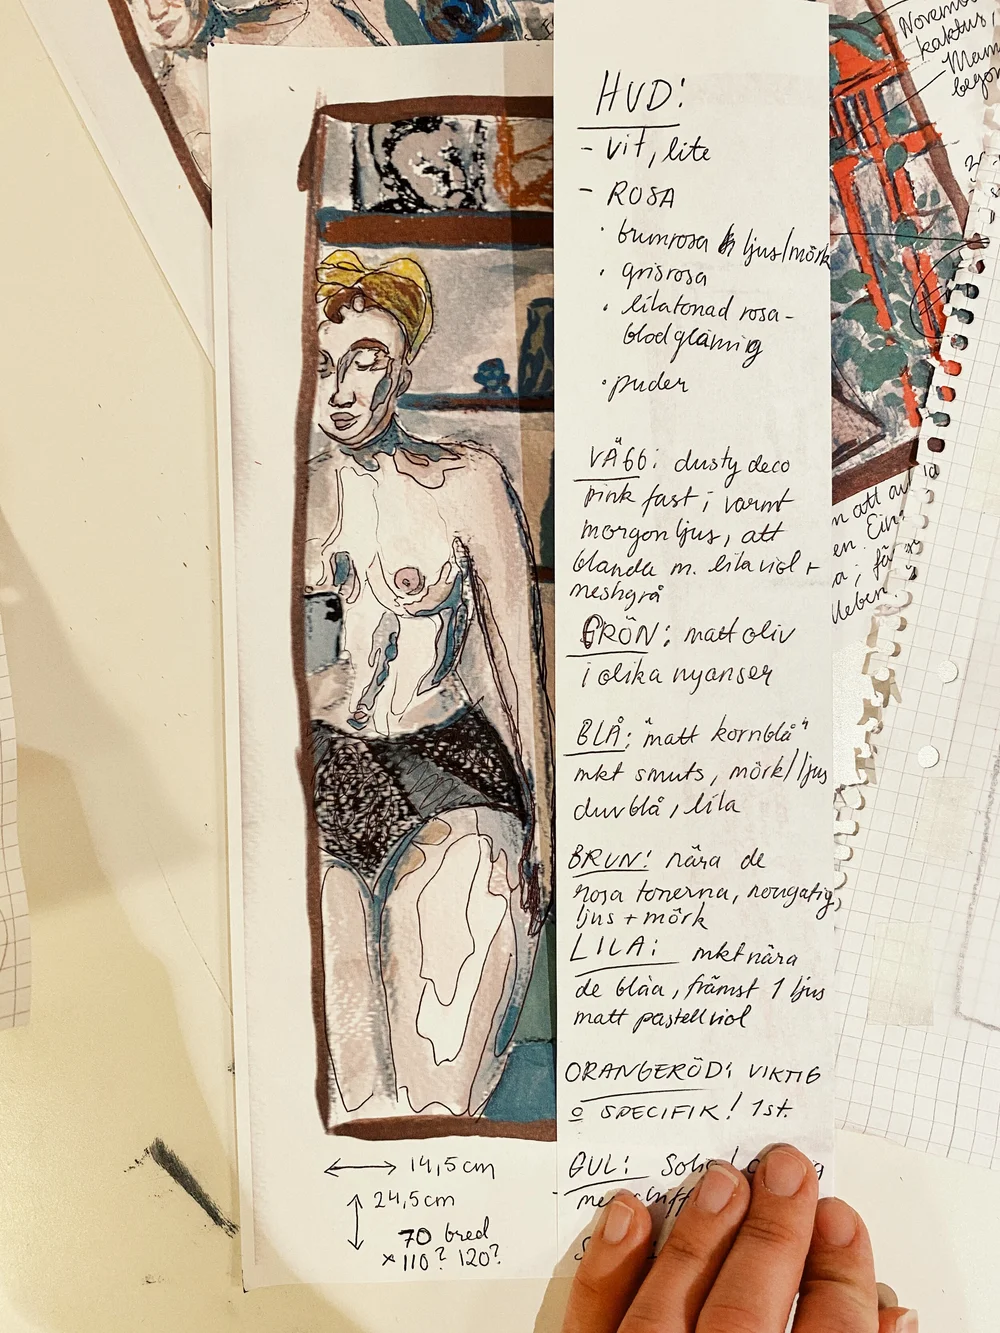 HUD:
- vit, lite
- ROSA
· brunrosa ljus/mörk
· grisrosa
· lilatonad rosa-
blodglämig
· puder
VÄGG: dusty deco
pink fast i varmt
morgonljus, att
blanda m. lila viol +
GRÖN: matt oliv
i olika nyanser
BLÅ: "matt kornblå"
mkt smuts, mörk/ljus
duvblå, lila
BRUN: nära de
rosa tonerna, nougatig,
ljus + mörk
LILA: mkt nära
de blåa, främst 1 ljus
matt pastellviol
ORANGERÖD: VIKTIG
o SPECIFIK! 1st.
GUL:
14,5cm
24,5cm
70 bred
x 110? 120?
November
kaktus,
begon